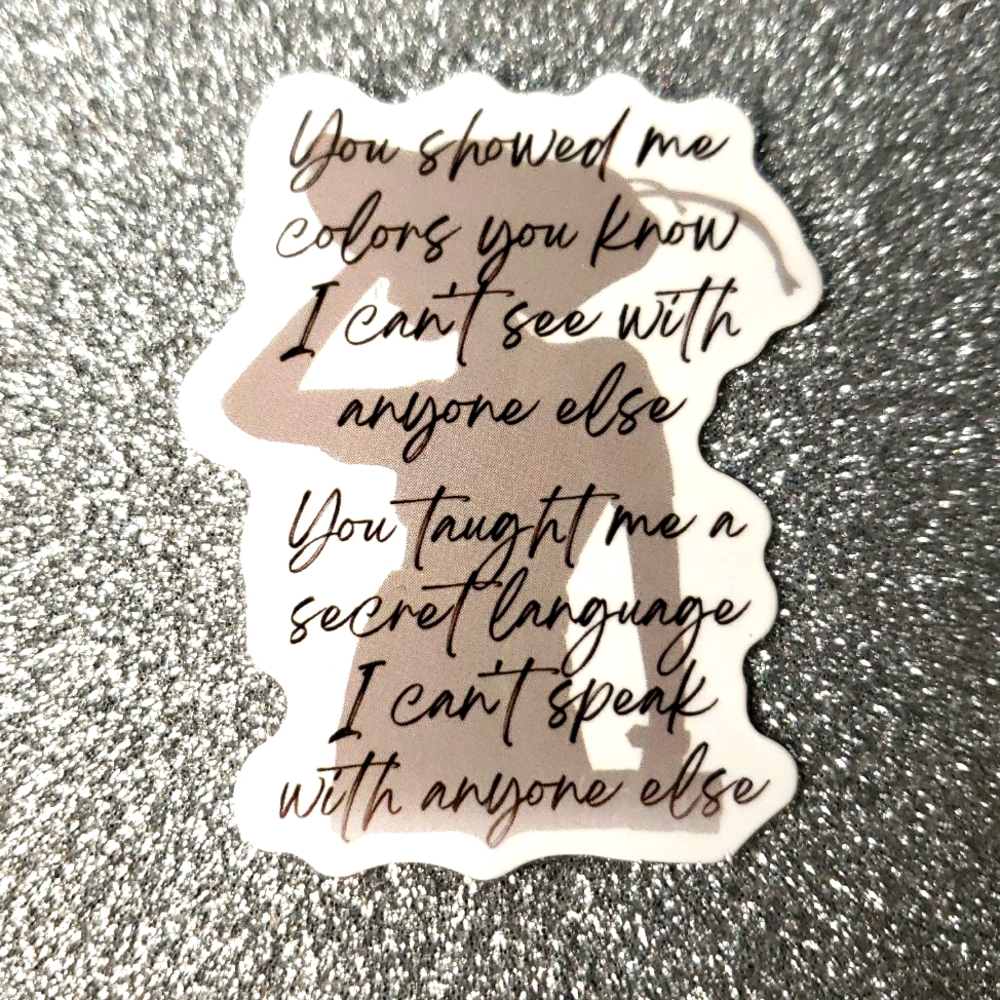 You showed me
colors you know
I can't see with
anyone else
You taught me a
secret language
I can't speak
with anyone else